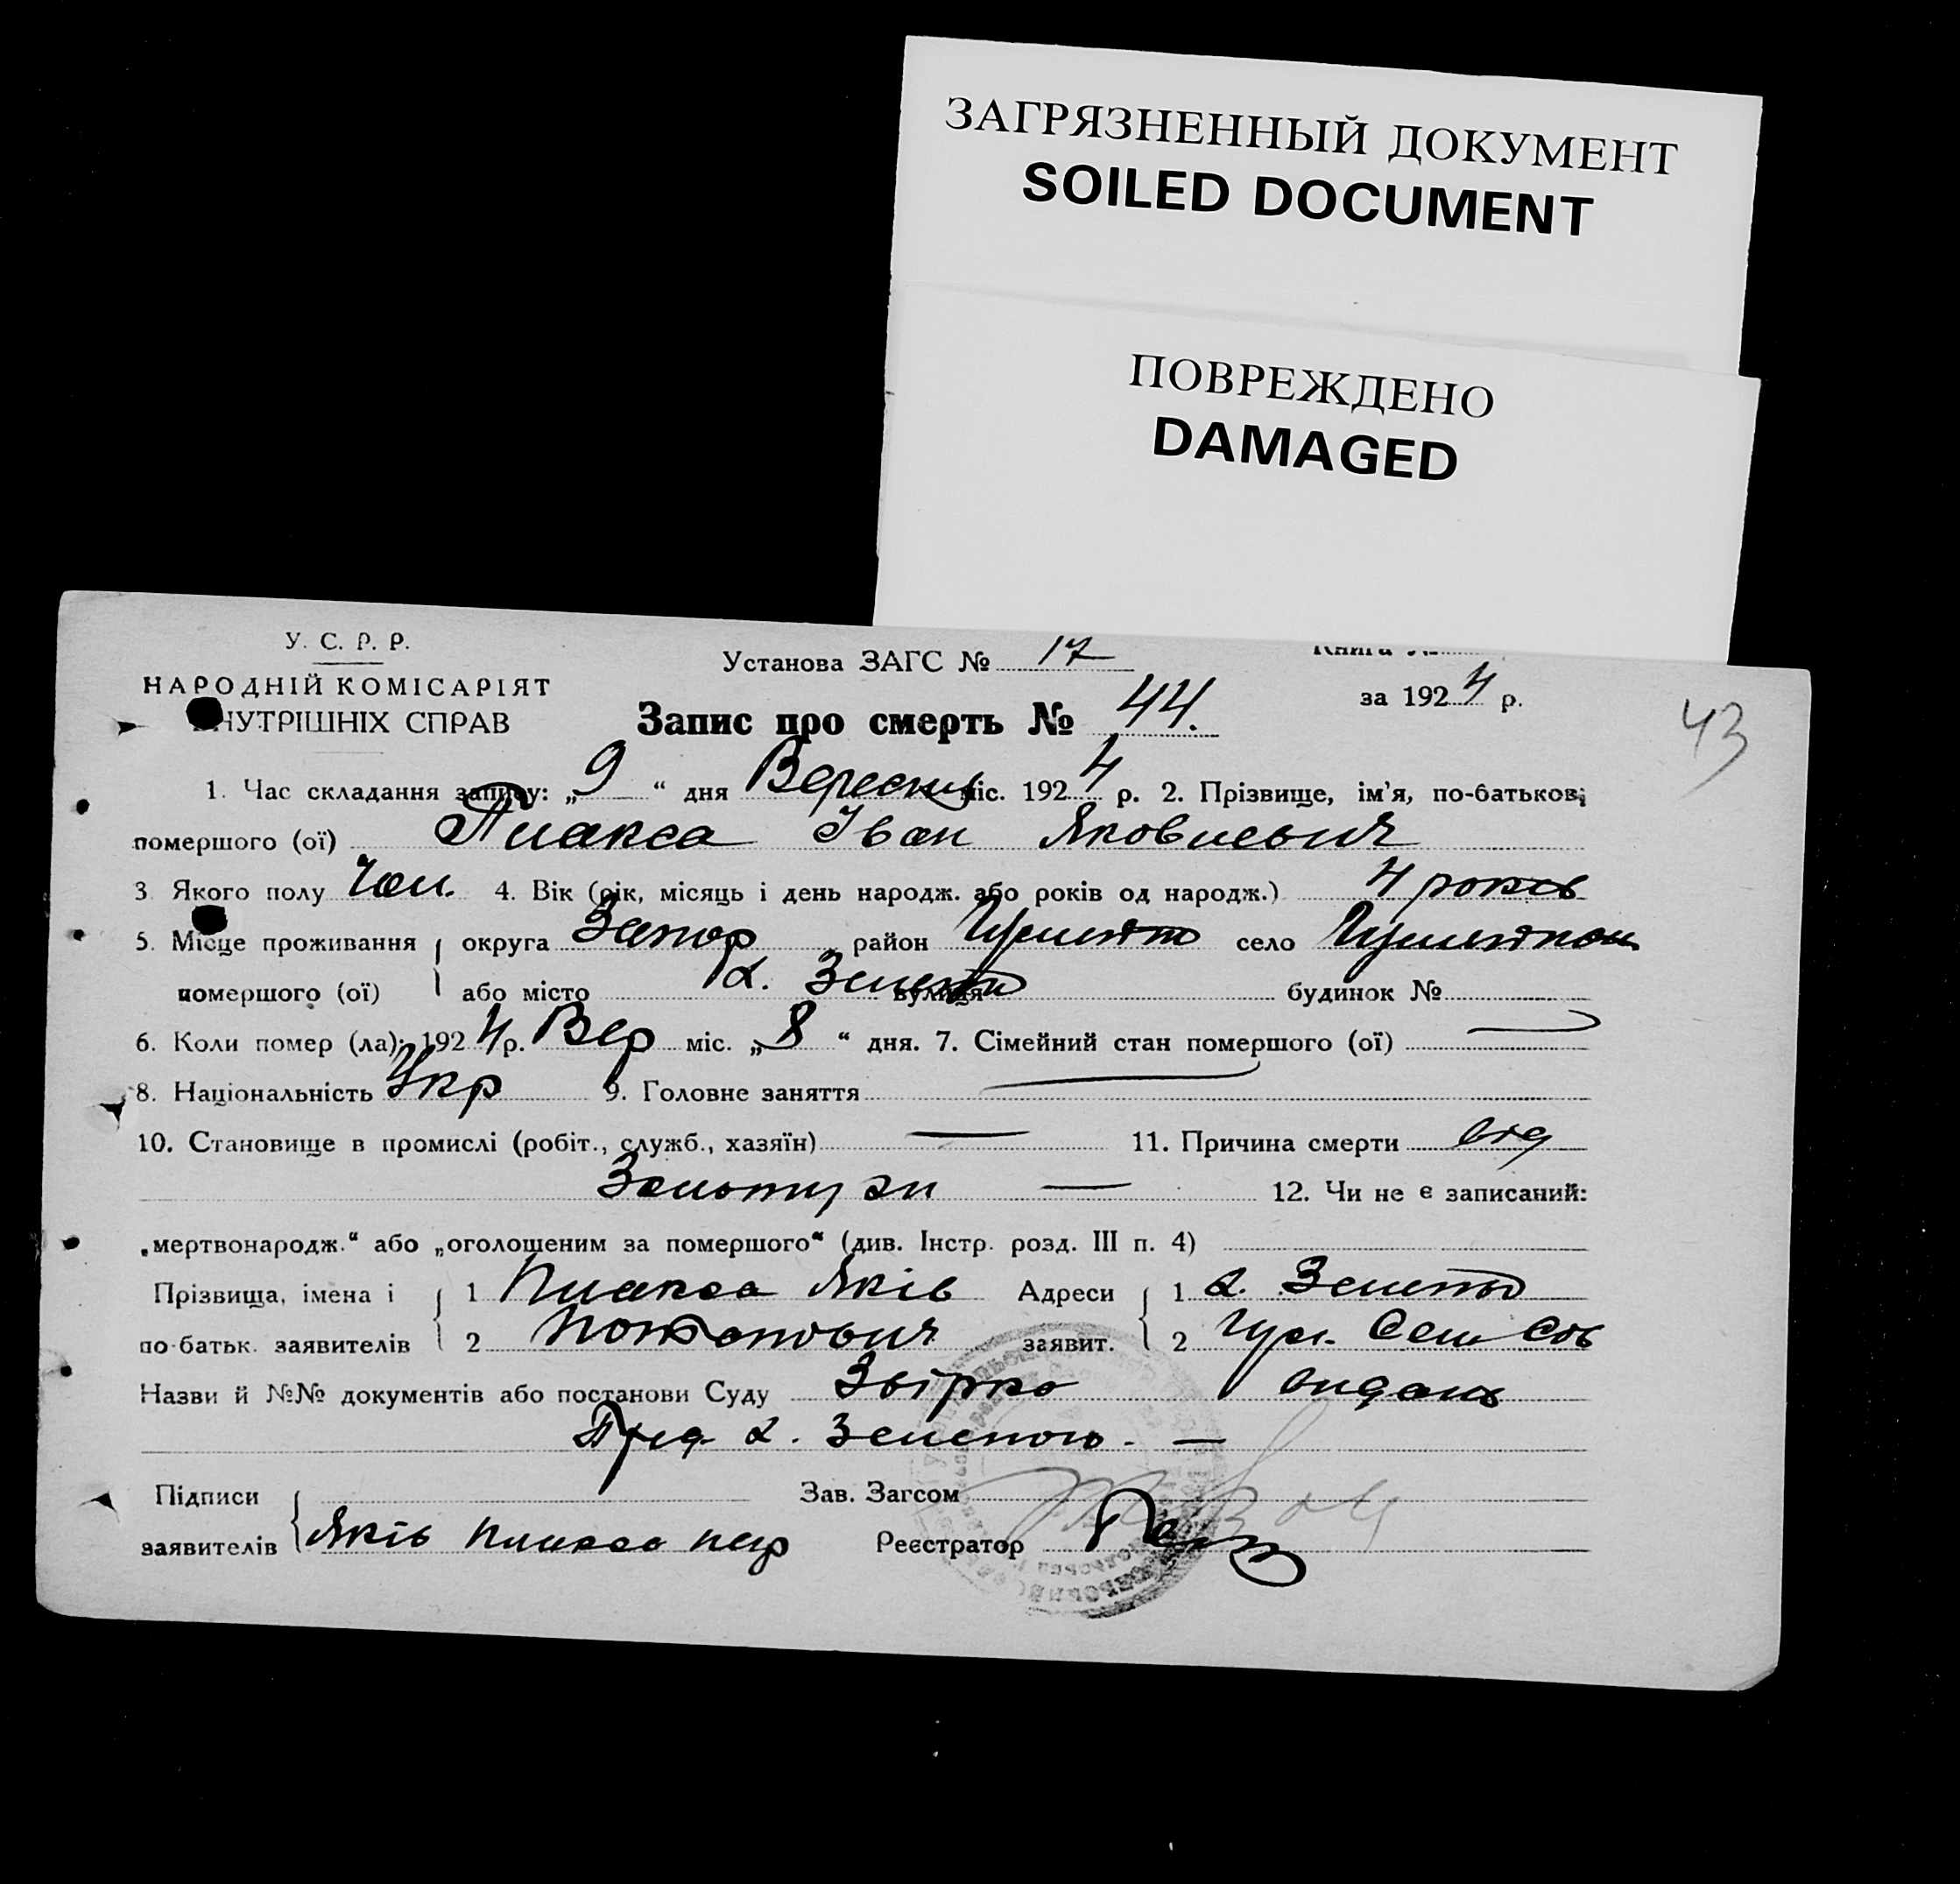 ЗАГРЯЗНЕННЫЙ ДОКУМЕНТ
SOILED DOCUMENT
ПОВРЕЖДЕНО
DAMAGED
У. С. Р. Р.
НАРОДНІЙ КОМІСАРІЯТ
НУТРІШНІХ СПРАВ
Установа ЗАГС № 17
за 1924 р.
Запис про смерть № 44.
43
1. Час складання запису: „9“ дня Вересня міс. 1924 р. 2. Прізвище, ім'я, по-батькові
помершого (ої) Плакса Іван Яковлевич
3 Якого полу Чол. 4. Вік (рік, місяць і день народж. або років од народж.) 4 років
5. Місце проживання округа Запор район село
помершого (ої) або місто вулиця будинок №
6. Коли помер (ла): 1924 р. Вер міс. „8“ дня. 7. Сімейний стан помершого (ої) —
8. Національність Укр 9. Головне заняття —
10. Становище в промислі (робіт., служб., хазяїн) — 11. Причина смерти від
— 12. Чи не є записаний:
„мертвонародж.“ або „оголошеним за помершого“ (див. Інстр. розд. III п. 4)
Прізвища, імена і 1 Плакса Яків Адреси 1
по-батьк. заявителів 2 заявит. 2 Сель Сов
Назви й №№ документів або постанови Суду
Пред —
Підписи Зав. Загсом
заявителів Яків Плакса Реєстратор